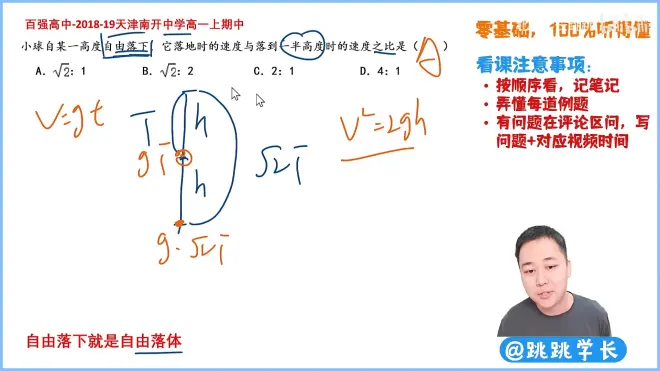 百强高中-2018-19天津南开中学高一上期中
小球自某一高度自由落下，它落地时的速度与落到一半高度时的速度之比是（ A ）
A. √2：1  B. √2：2  C. 2：1  D. 4：1
V=gt
T
h
gT
h
g·√2T
√2T
V²=2gh
自由落下就是自由落体
零基础，100%听得懂
看课注意事项：
• 按顺序看，记笔记
• 弄懂每道例题
• 有问题在评论区问，写
问题+对应视频时间
@跳跳学长